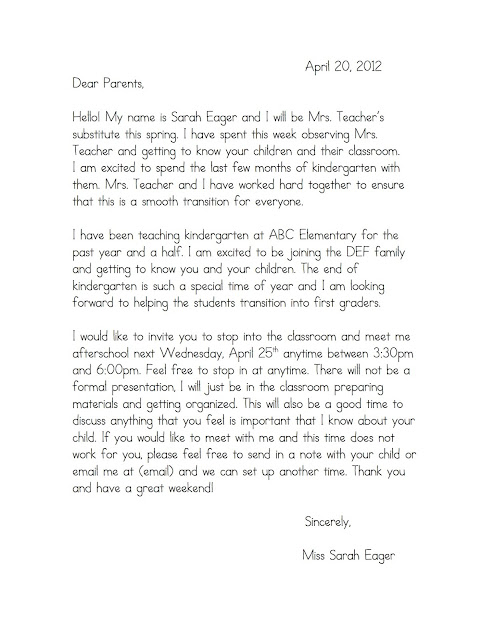 April 20, 2012
Dear Parents,
Hello! My name is Sarah Eager and I will be Mrs. Teacher's
substitute this spring. I have spent this week observing Mrs.
Teacher and getting to know your children and their classroom.
I am excited to spend the last few months of kindergarten with
them. Mrs. Teacher and I have worked hard together to ensure
that this is a smooth transition for everyone.
I have been teaching kindergarten at ABC Elementary for the
past year and a half. I am excited to be joining the DEF family
and getting to know you and your children. The end of
kindergarten is such a special time of year and I am looking
forward to helping the students transition into first graders.
I would like to invite you to stop into the classroom and meet me
afterschool next Wednesday, April 25th anytime between 3:30pm
and 6:00pm. Feel free to stop in at anytime. There will not be a
formal presentation, I will just be in the classroom preparing
materials and getting organized. This will also be a good time to
discuss anything that you feel is important that I know about your
child. If you would like to meet with me and this time does not
work for you, please feel free to send in a note with your child or
email me at (email) and we can set up another time. Thank you
and have a great weekend!
Sincerely,
Miss Sarah Eager